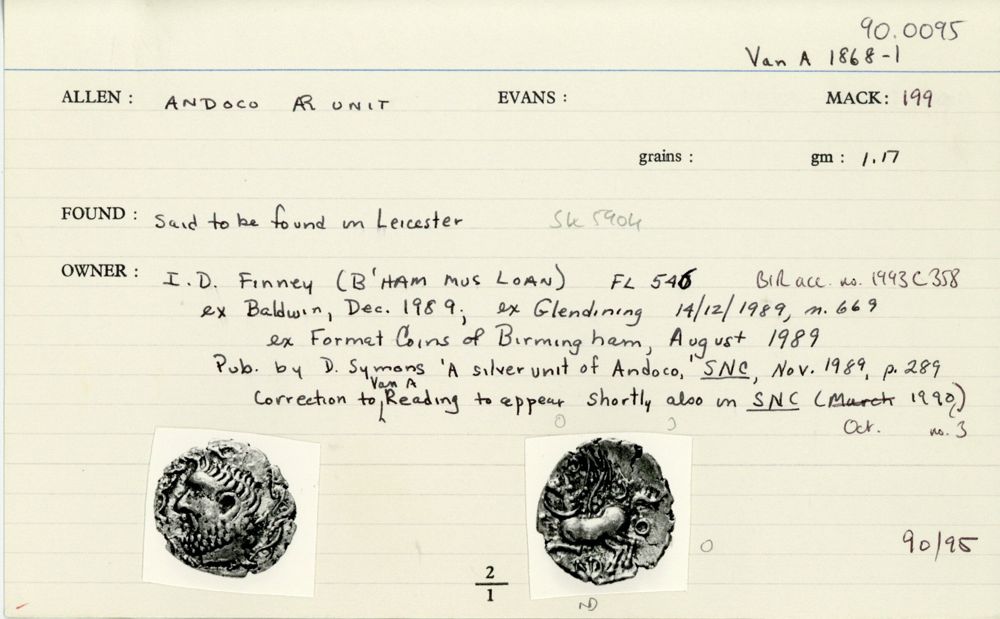 90.0095
Van A 1868-1
ALLEN : ANDOCO AR UNIT EVANS : MACK: 199
grains : gm : 1.17
FOUND : Said to be found in Leicester SK 5904
OWNER : I.D. Finney (B'HAM MUS LOAN) FL 546 BIR acc. no. 1993 C 358
ex Baldwin, Dec. 1989; ex Glendining 14/12/1989, n. 669
ex Format Coins of Birmingham, August 1989
Pub. by D. Symons 'A silver unit of Andoco,' SNC, Nov. 1989, p. 289
Van A
Correction to Reading to appear shortly also in SNC (March 1990)
Oct. no. 3
O
O
90/95
2
1
ND